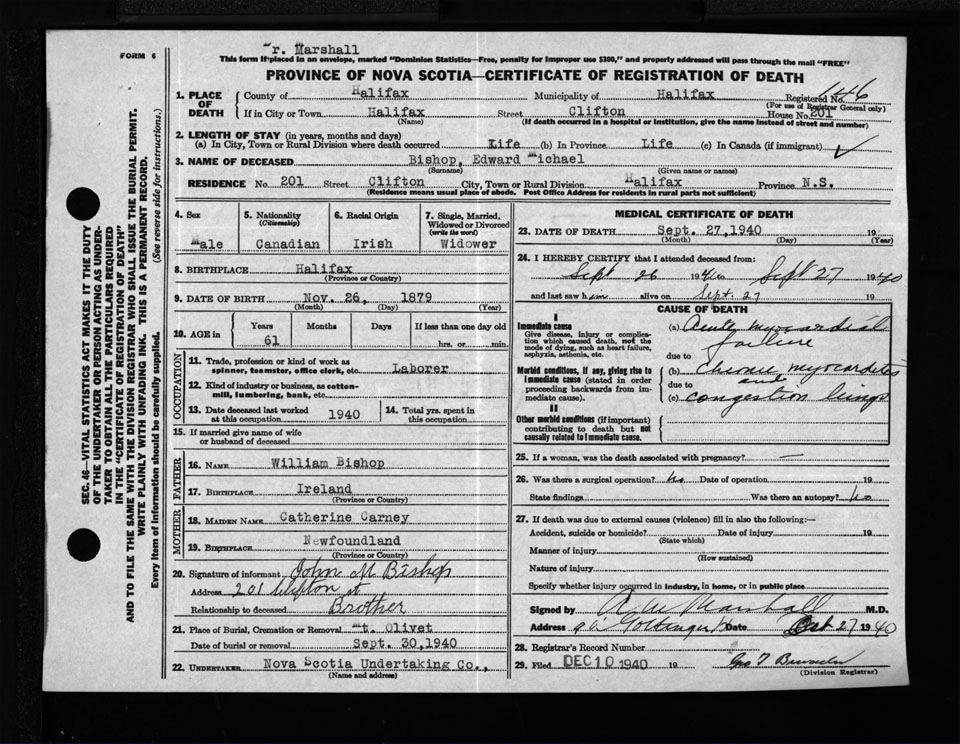 FORM 6
Dr. Marshall
This form if placed in an envelope, marked "Dominion Statistics—Free, penalty for improper use $300," and properly addressed will pass through the mail "FREE"
PROVINCE OF NOVA SCOTIA—CERTIFICATE OF REGISTRATION OF DEATH
1. PLACE OF DEATH County of Halifax Municipality of Halifax Registered No. 646
(For use of Registrar General only)
If in City or Town Halifax Street Clifton House No. 201
(Name) (If death occurred in a hospital or institution, give the name instead of street and number)
2. LENGTH OF STAY (in years, months and days)
(a) In City, Town or Rural Division where death occurred Life (b) In Province Life (c) In Canada (if immigrant) ✓
3. NAME OF DECEASED Bishop, Edward Michael
(Surname) (Given name or names)
RESIDENCE No. 201 Street Clifton City, Town or Rural Division Halifax Province N.S.
(Residence means usual place of abode. Post Office Address for residents in rural parts not sufficient)
4. Sex Male
5. Nationality (Citizenship) Canadian
6. Racial Origin Irish
7. Single, Married, Widowed or Divorced (write the word) Widower
8. BIRTHPLACE Halifax
(Province or Country)
9. DATE OF BIRTH Nov. 26, 1879
(Month) (Day) (Year)
10. AGE in Years 61 Months Days If less than one day old
hrs. or min.
OCCUPATION
11. Trade, profession or kind of work as spinner, teamster, office clerk, etc. Laborer
12. Kind of industry or business, as cotton-mill, lumbering, bank, etc.
13. Date deceased last worked at this occupation 1940
14. Total yrs. spent in this occupation
15. If married give name of wife or husband of deceased
FATHER
16. NAME William Bishop
17. BIRTHPLACE Ireland
(Province or Country)
MOTHER
18. MAIDEN NAME Catherine Carney
19. BIRTHPLACE Newfoundland
(Province or Country)
20. Signature of informant John M Bishop
Address 201 Clifton st
Relationship to deceased Brother
21. Place of Burial, Cremation or Removal Mt. Olivet
Date of burial or removal Sept. 30, 1940
22. UNDERTAKER Nova Scotia Undertaking Co.,
(Name and address)
MEDICAL CERTIFICATE OF DEATH
23. DATE OF DEATH Sept. 27, 1940 19
(Month) (Day) (Year)
24. I HEREBY CERTIFY that I attended deceased from:
Sept 26 1940 to Sept 27 1940
and last saw him alive on Sept. 27 19
CAUSE OF DEATH
I
Immediate cause
Give disease, injury or complication which caused death, not the mode of dying, such as heart failure, asphyxia, asthenia, etc.
(a) Acute myocardial failure
due to
Morbid conditions, if any, giving rise to immediate cause (stated in order proceeding backwards from immediate cause).
(b) Chronic myocarditis and
due to
(c) congestion lungs
II
Other morbid conditions (if important) contributing to death but not causally related to immediate cause.
25. If a woman, was the death associated with pregnancy? —
26. Was there a surgical operation? no Date of operation 19
State findings Was there an autopsy? no
27. If death was due to external causes (violence) fill in also the following:—
Accident, suicide or homicide? Date of injury 19
(State which)
Manner of injury
(How sustained)
Nature of injury
Specify whether injury occurred in industry, in home, or in public place
Signed by Marshall M.D.
Address Gottingen Date 27 1940
28. Registrar's Record Number
29. Filed DEC 10 1940 19
(Division Registrar)
SEC. 46—VITAL STATISTICS ACT MAKES IT THE DUTY
OF THE UNDERTAKER OR PERSON ACTING AS UNDER-
TAKER TO OBTAIN ALL THE PARTICULARS REQUIRED
IN THE "CERTIFICATE OF REGISTRATION OF DEATH"
AND TO FILE THE SAME WITH THE DIVISION REGISTRAR WHO SHALL ISSUE THE BURIAL PERMIT.
WRITE PLAINLY WITH UNFADING INK. THIS IS A PERMANENT RECORD.
Every item of information should be carefully supplied. (See reverse side for instructions.)